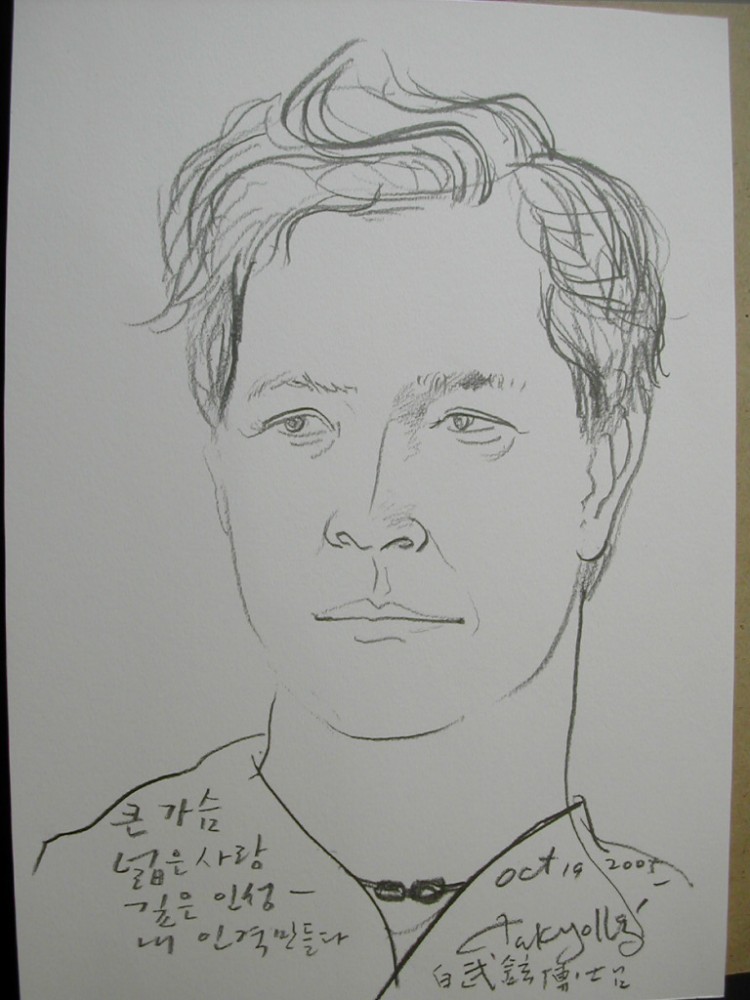 큰 가슴
넓은 사랑
깊은 인성 –
내 인격 만들다
oct 19 2005
白武鉉博士님